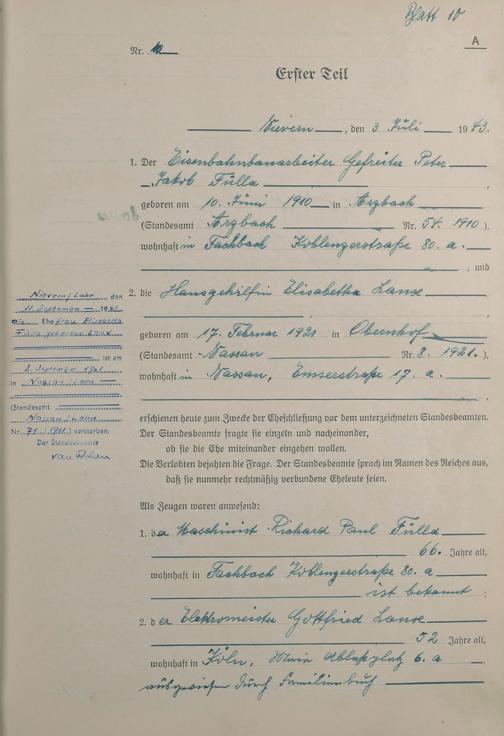 Blatt 10
A
Nr. 10
Erster Teil
Nievern, den 3 Juli 1943.
1. Der Eisenbahnbauarbeiter Gefreiter Peter
Jakob Fülla
geboren am 10. Juni 1910 in Arzbach
(Standesamt Arzbach Nr. 54. 1910.).
wohnhaft in Fachbach Koblenzerstraße 80. a.
, und
2. die Hausgehilfin Elisabetha
geboren am 17. Februar 1921 in
(Standesamt Nassau Nr. 8. 1921.).
wohnhaft in Nassau, Emserstraße 17. a.
erschienen heute zum Zwecke der Eheschließung vor dem unterzeichneten Standesbeamten.
Der Standesbeamte fragte sie einzeln und nacheinander,
ob sie die Ehe miteinander eingehen wollen.
Die Verlobten bejahten die Frage. Der Standesbeamte sprach im Namen des Reiches aus,
daß sie nunmehr rechtmäßig verbundene Eheleute seien.
Als Zeugen waren anwesend:
1. der Maschinist Richard Paul Fülla
66. Jahre alt,
wohnhaft in Fachbach Koblenzerstraße 80. a
ist bekannt ;
2. der Elektromeister Gottfried
52 Jahre alt,
wohnhaft in Köln, 6. a
ausgewiesen durch Familienbuch
Nievern/Lahn, den
11. September 1961
Die Ehefrau Elisabetha
Fülla geborene
ist am
2. September 1961
in Nassau/Lahn
(Standesamt
Nassau/Lahn
Nr. 71/1961) verstorben.
Der Standesbeamte